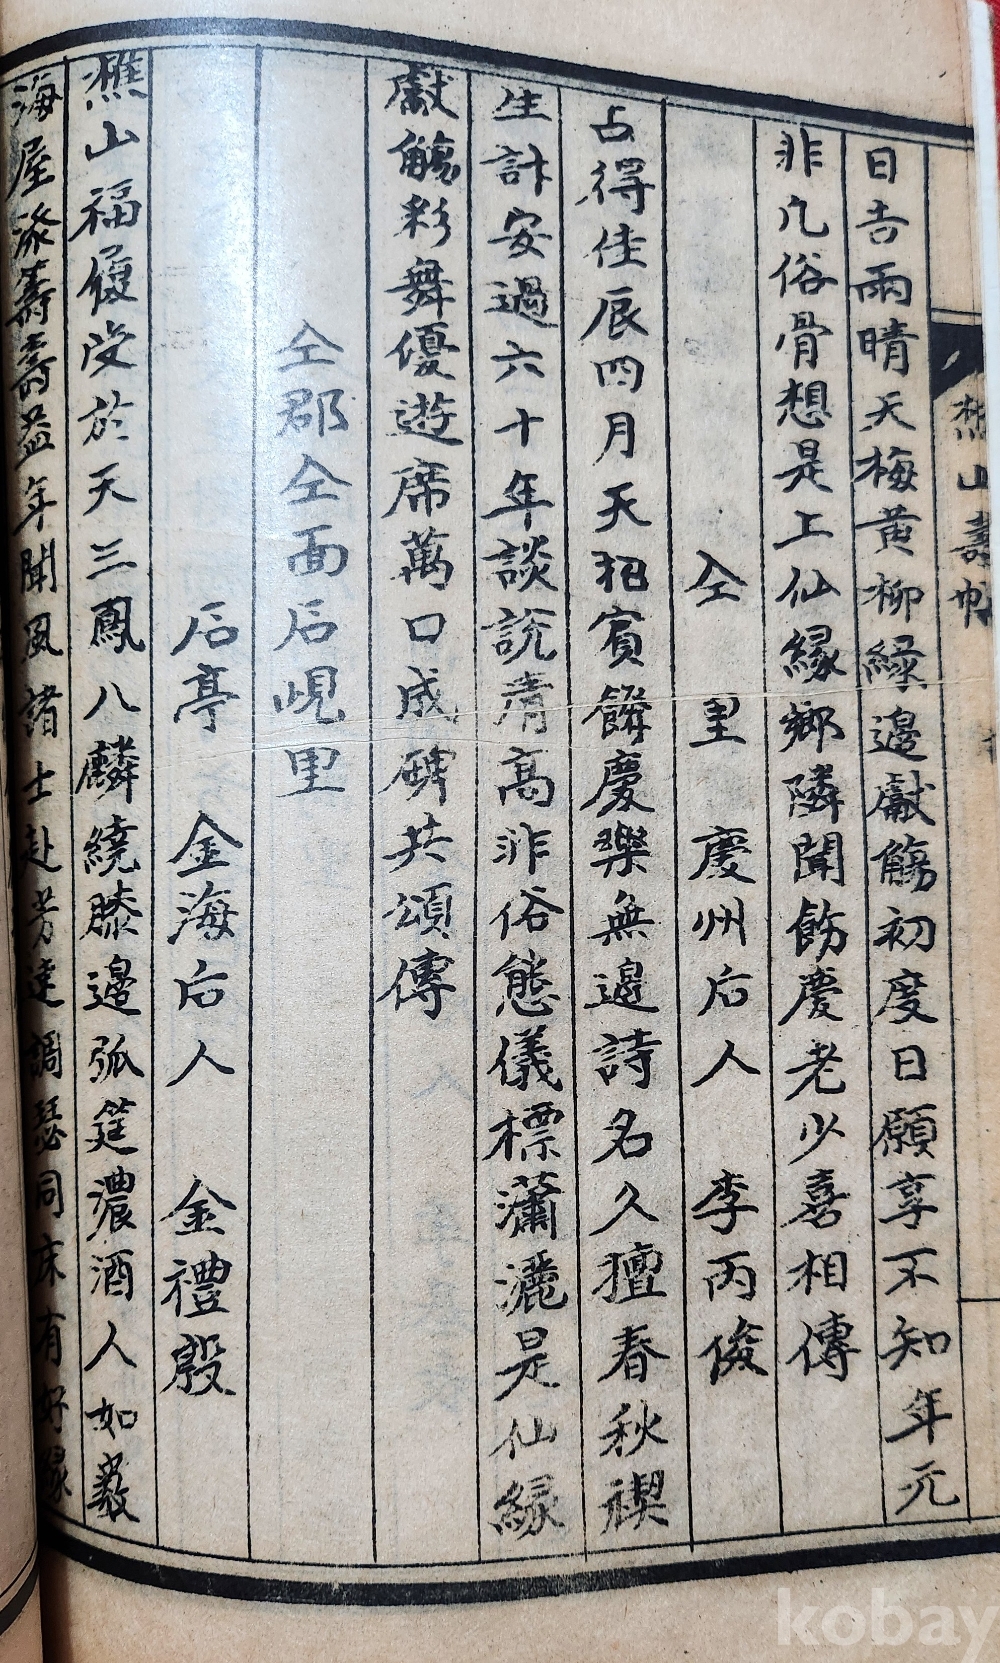 樵山壽帖
日吉雨晴天梅黄柳緑邊獻觴初度日願享不知年元
非凡俗骨想是上仙緣鄉隣聞飭慶老少喜相傳
仝里 慶州后人 李丙俊
占得佳辰四月天招賓餙慶樂無邊詩名久擅春秋禊
生計安過六十年談說清高非俗態儀標瀟灑是仙緣
獻觴彩舞優遊席萬口成碑共頌傳
仝郡仝面后峴里
后亭 金海后人 金禮殷
樵山福履受於天三鳳八麟繞膝邊弧筵濃酒人如
海屋添籌壽益年聞風諸士赴芳達調瑟同床有好緣
kobay